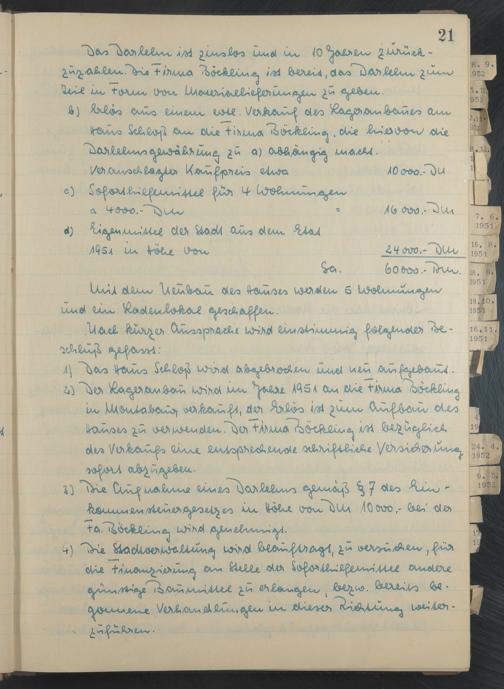 21
Das Darlehn ist zinslos und in 10 Jahren zurück-
zuzahlen. Die Firma Böckling ist bereit, das Darlehn zum
Teil in Form von Materiallieferungen zu geben.
b) Erlös aus einem evtl. Verkauf des Lageranbaues am
Haus Schloß an die Firma Böckling, die hiervon die
Darlehnsgewährung zu a) abhängig macht.
Veranschlagter Kaufpreis etwa 10 000.- DM
c) Soforthilfemittel für 4 Wohnungen
a 4000.- DM " 16 000.- DM
d) Eigenmittel der Stadt aus dem Etat
1951 in Höhe von 24 000.- DM
Sa. 60 000.- DM.
Mit dem Neubau des Hauses werden 5 Wohnungen
und ein Ladenlokal geschaffen.
Nach kurzer Aussprache wird einstimmig folgender Be-
schluß gefasst:
1) Das Haus Schloß wird abgebrochen und neu aufgebaut.
2) Der Lageranbau wird im Jahre 1951 an die Firma Böckling
in Montabaur verkauft, der Erlös ist zum Aufbau des
Hauses zu verwenden. Der Firma Böckling ist bezüglich
des Verkaufs eine entsprechende schriftliche Versicherung
sofort abzugeben.
3) Die Aufnahme eines Darlehns gemäß § 7 des Ein-
kommensteuergesetzes in Höhe von DM 10 000,- bei der
Fa. Böckling wird genehmigt.
4) Die Stadtverwaltung wird beauftragt, zu versuchen, für
die Finanzierung an Stelle der Soforthilfemittel andere
günstige Baumittel zu erlangen, bezw. bereits be-
gonnene Verhandlungen in dieser Richtung weiter-
zuführen.
7. 6.
1951
1951
16.11.
1951
24. 4.
1952